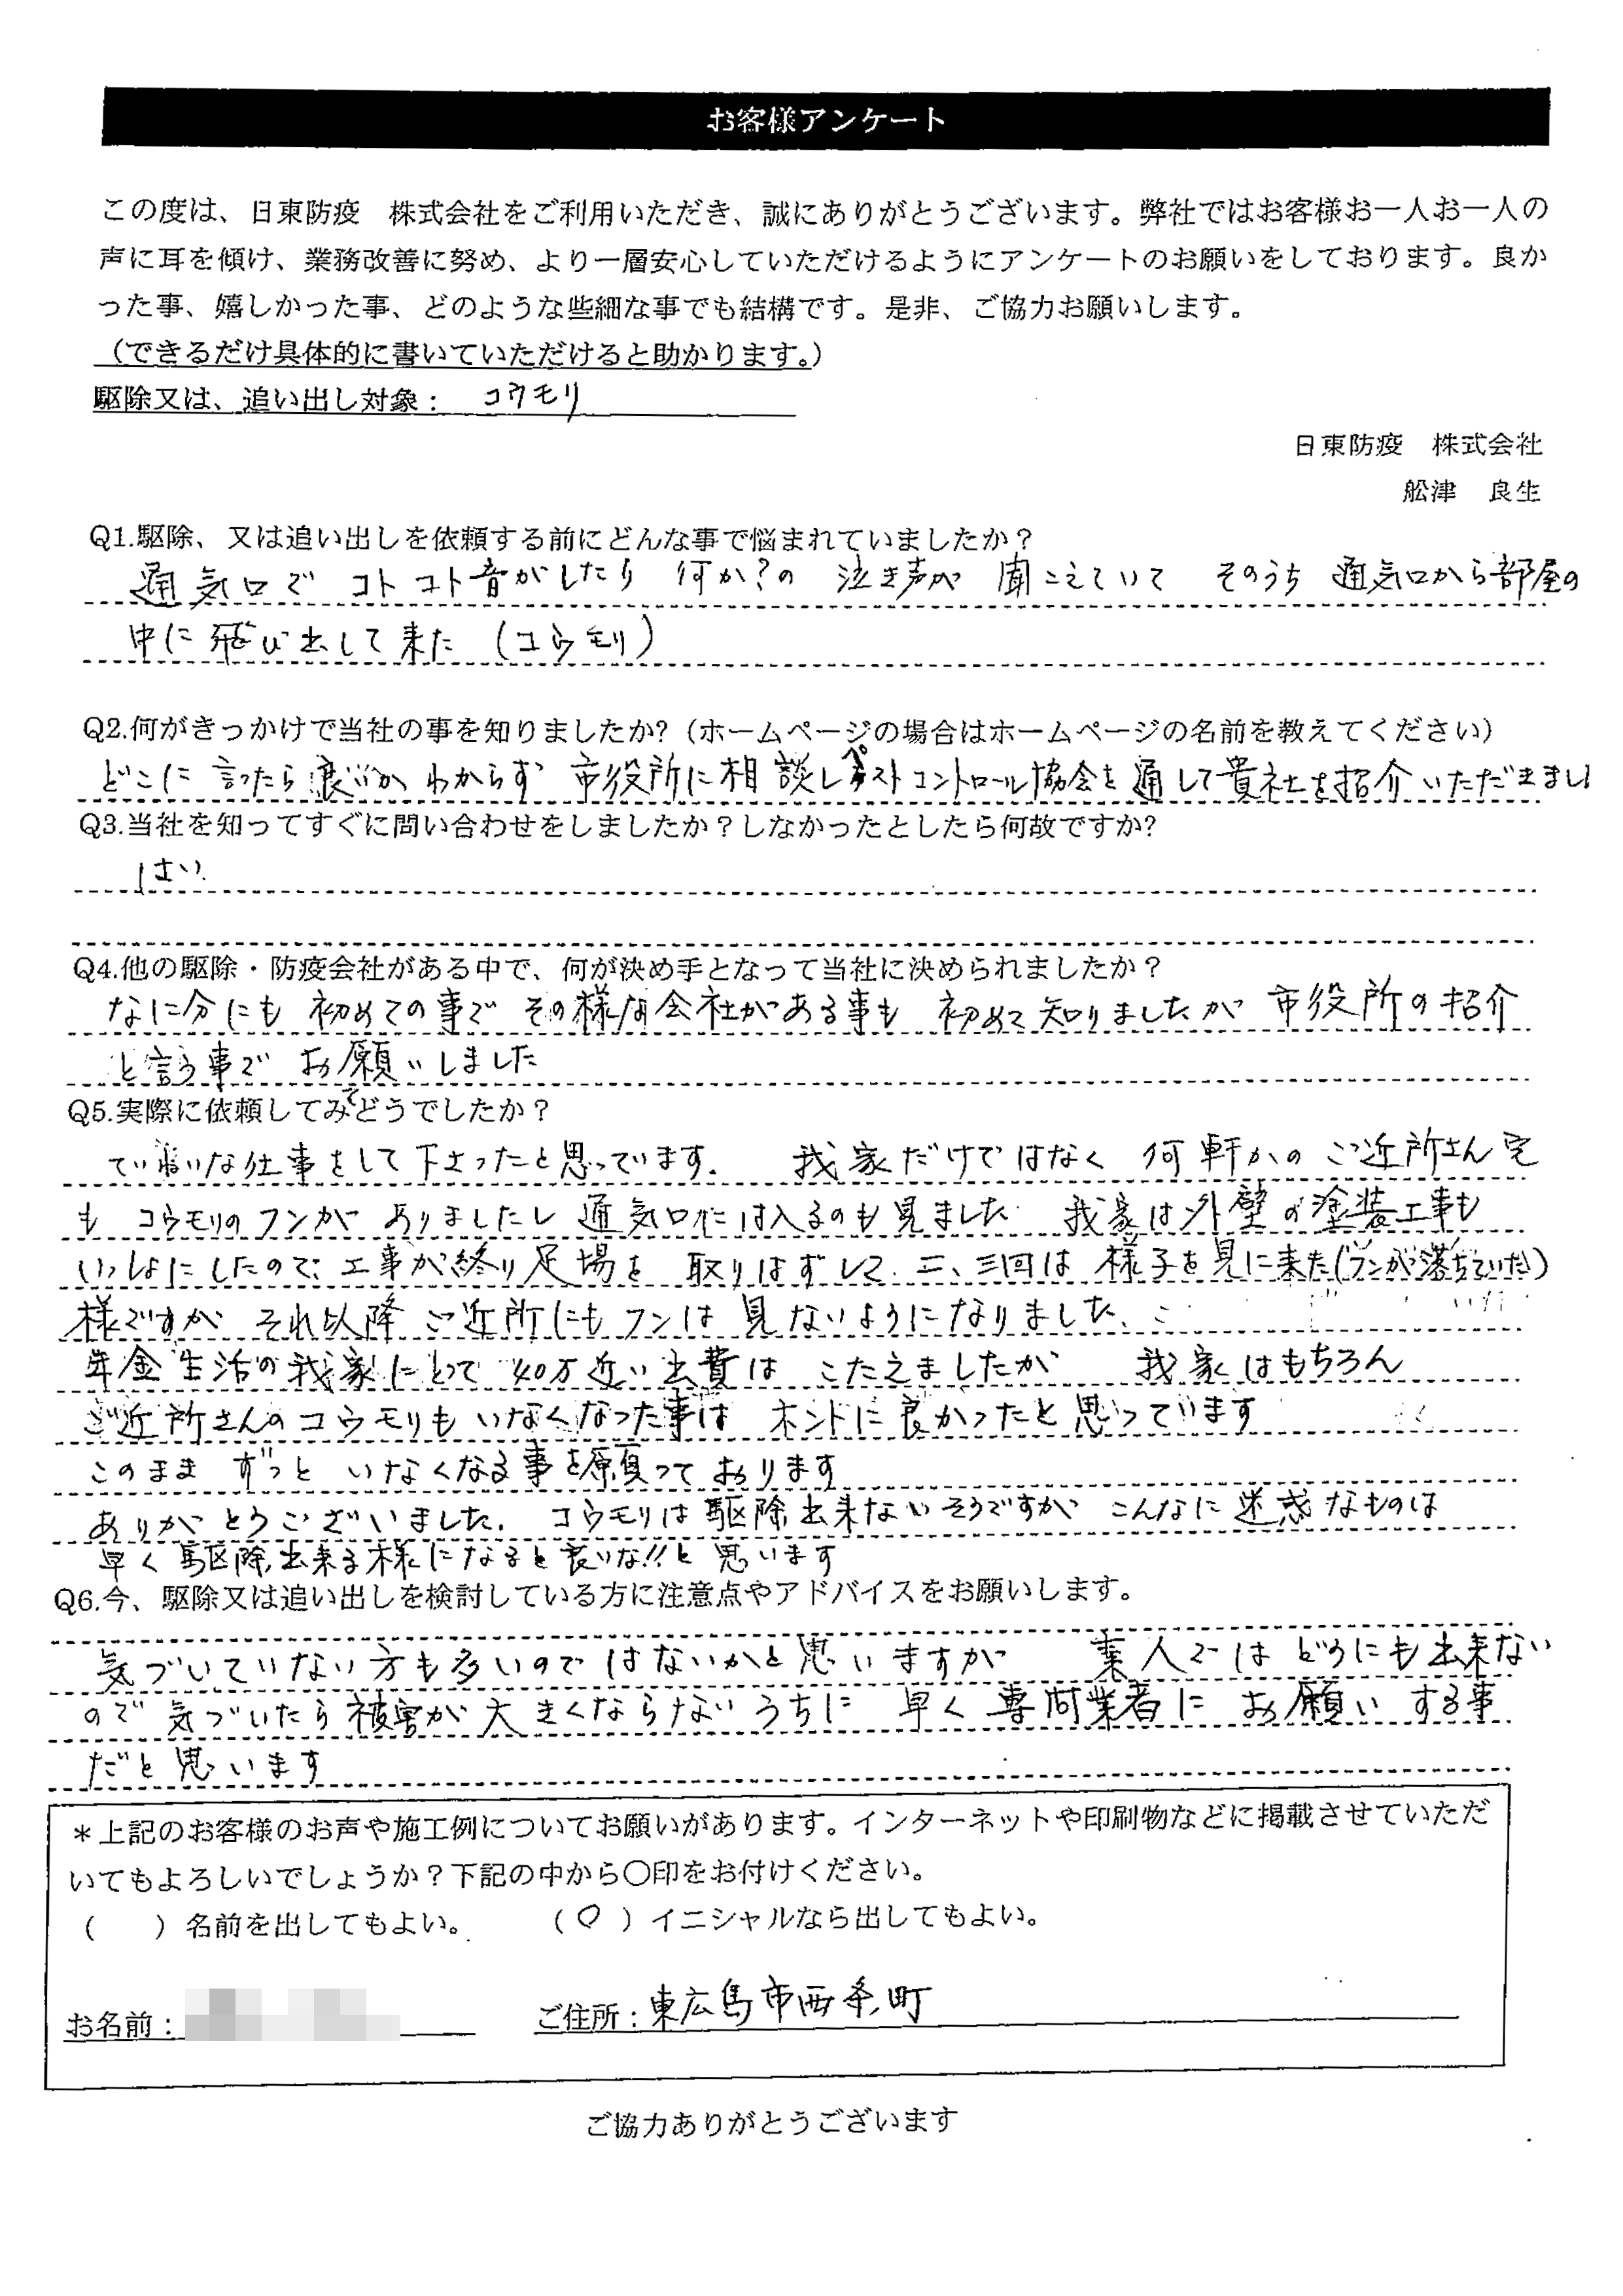 お客様アンケート
この度は、日東防疫　株式会社をご利用いただき、誠にありがとうございます。弊社ではお客様お一人お一人の
声に耳を傾け、業務改善に努め、より一層安心していただけるようにアンケートのお願いをしております。良か
った事、嬉しかった事、どのような些細な事でも結構です。是非、ご協力お願いします。
（できるだけ具体的に書いていただけると助かります。）
駆除又は、追い出し対象：　コウモリ
日東防疫　株式会社
舩津　良生
Q1.駆除、又は追い出しを依頼する前にどんな事で悩まれていましたか？
通気口で コトコト音がしたり 何か？の 泣き声が 聞こえていて そのうち 通気口から部屋の
中に飛び出して来た（コウモリ）
Q2.何がきっかけで当社の事を知りましたか?（ホームページの場合はホームページの名前を教えてください）
どこに 言ったら良いか わからず 市役所に相談し ペストコントロール協会を通して貴社を招介いただきまし
Q3.当社を知ってすぐに問い合わせをしましたか？しなかったとしたら何故ですか?
はい
Q4.他の駆除・防疫会社がある中で、何が決め手となって当社に決められましたか？
なに分にも 初めての事で その様な会社がある事も 初めて知りましたが 市役所の招介
と言う事で お願いしました
Q5.実際に依頼してみてどうでしたか？
ていねいな仕事をして下さったと思っています. 我家だけではなく 何軒かの ご近所さん宅
も コウモリのフンが ありましたし 通気口には入るのも見ました 我家は外壁の塗装工事も
いっしょにしたので、工事が終り足場を 取りはずして 二、三回は 様子を見に来た（フンが落ちていた）
様ですが それ以降 ご近所にもフンは 見ないようになりました、
年金生活の我家にとって 40万近い出費は こたえましたが 我家はもちろん
ご近所さんのコウモリもいなくなった事は ホントに良かったと思っています
このまま ずっと いなくなる事を願っております
ありがとうございました. コウモリは駆除出来ないそうですが こんなに迷惑なものは
早く駆除出来る様になると良いな!!と思います
Q6.今、駆除又は追い出しを検討している方に注意点やアドバイスをお願いします。
気づいていない方も多いのではないかと思いますが 素人では どうにも出来ない
ので 気づいたら被害が大きくならないうちに 早く専門業者に お願いする事
だと思います
＊上記のお客様のお声や施工例についてお願いがあります。インターネットや印刷物などに掲載させていただ
いてもよろしいでしょうか？下記の中から〇印をお付けください。
（　　）名前を出してもよい。　（〇）イニシャルなら出してもよい。
お名前：　ご住所：東広島市西条町
ご協力ありがとうございます